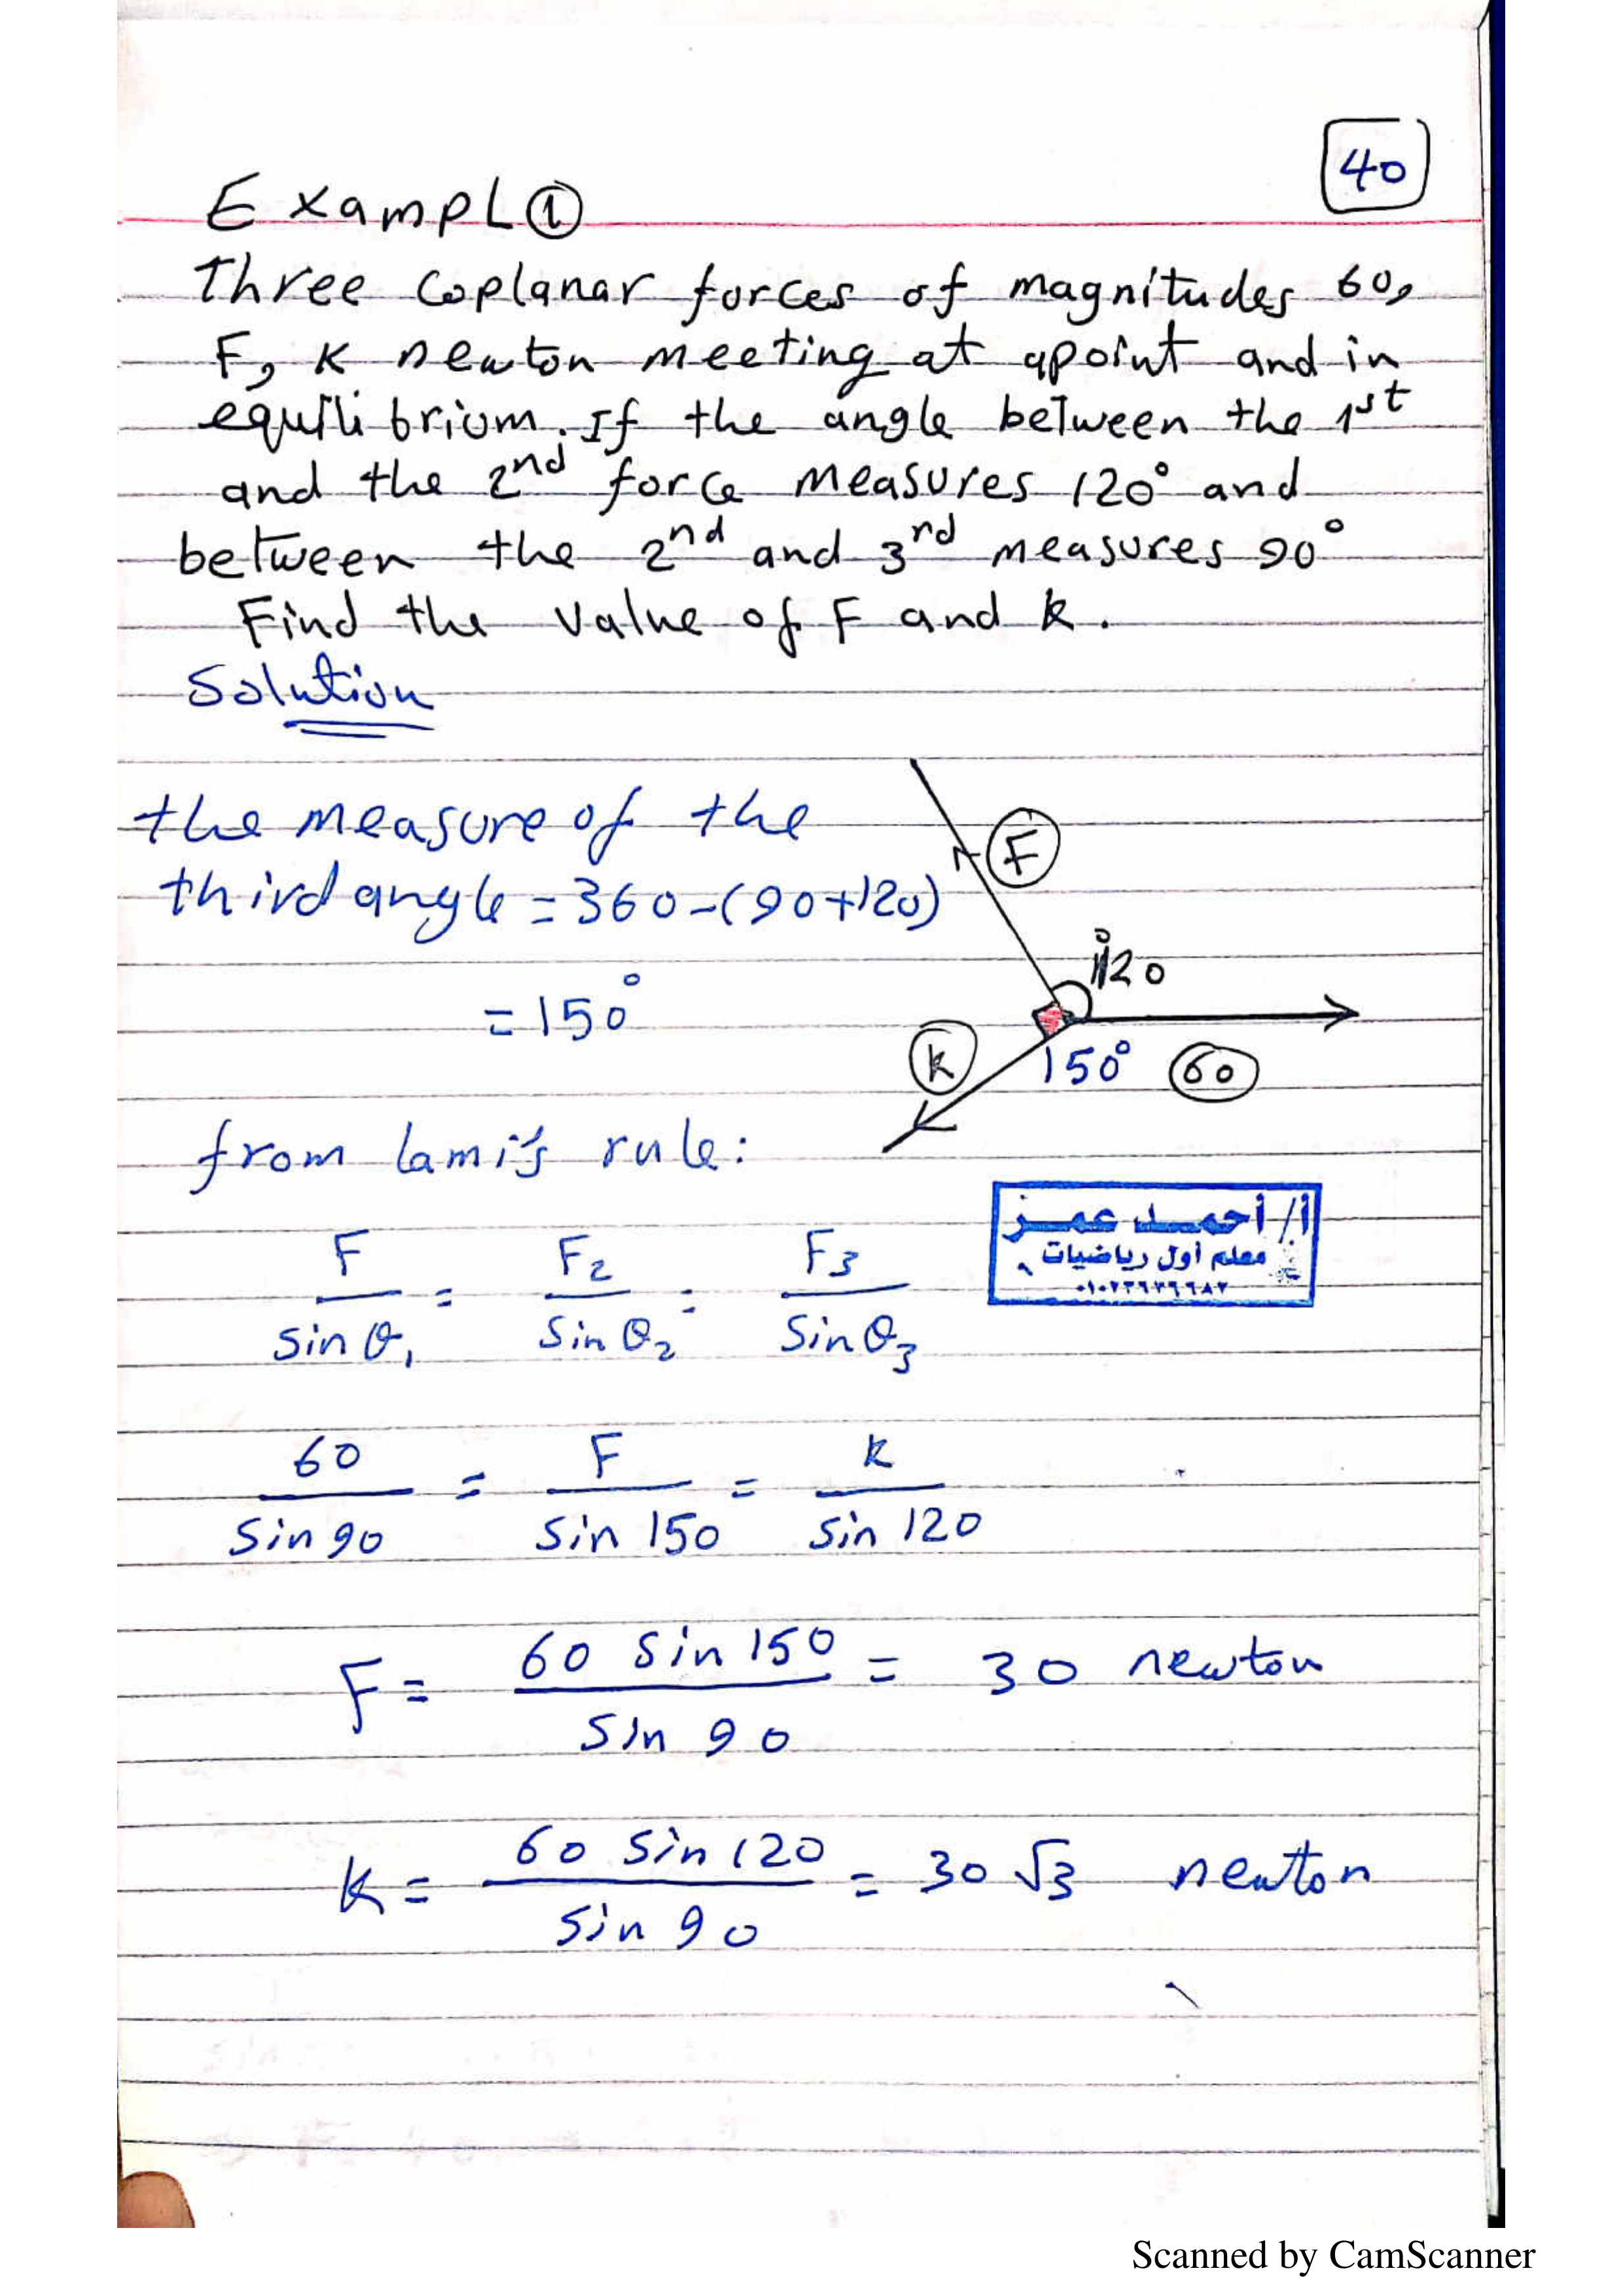 40
Exampl ①
Three coplanar forces of magnitudes 60,
F, K newton meeting at apoint and in
equilibrium. If the angle between the 1st
and the 2nd force measures 120° and
between the 2nd and 3rd measures 90°
Find the value of F and k.
Solution
the measure of the
third angle = 360-(90+120)
= 150°
F
120°
K
150° 60
from lami's rule:
F/sin θ₁ = F₂/sin θ₂ = F₃/sin θ₃
أ/ أحمد عمر
معلم أول رياضيات
60/sin 90 = F/sin 150 = k/sin 120
F = 60 sin 150/sin 90 = 30 newton
K = 60 sin 120/sin 90 = 30 √3 newton
Scanned by CamScanner